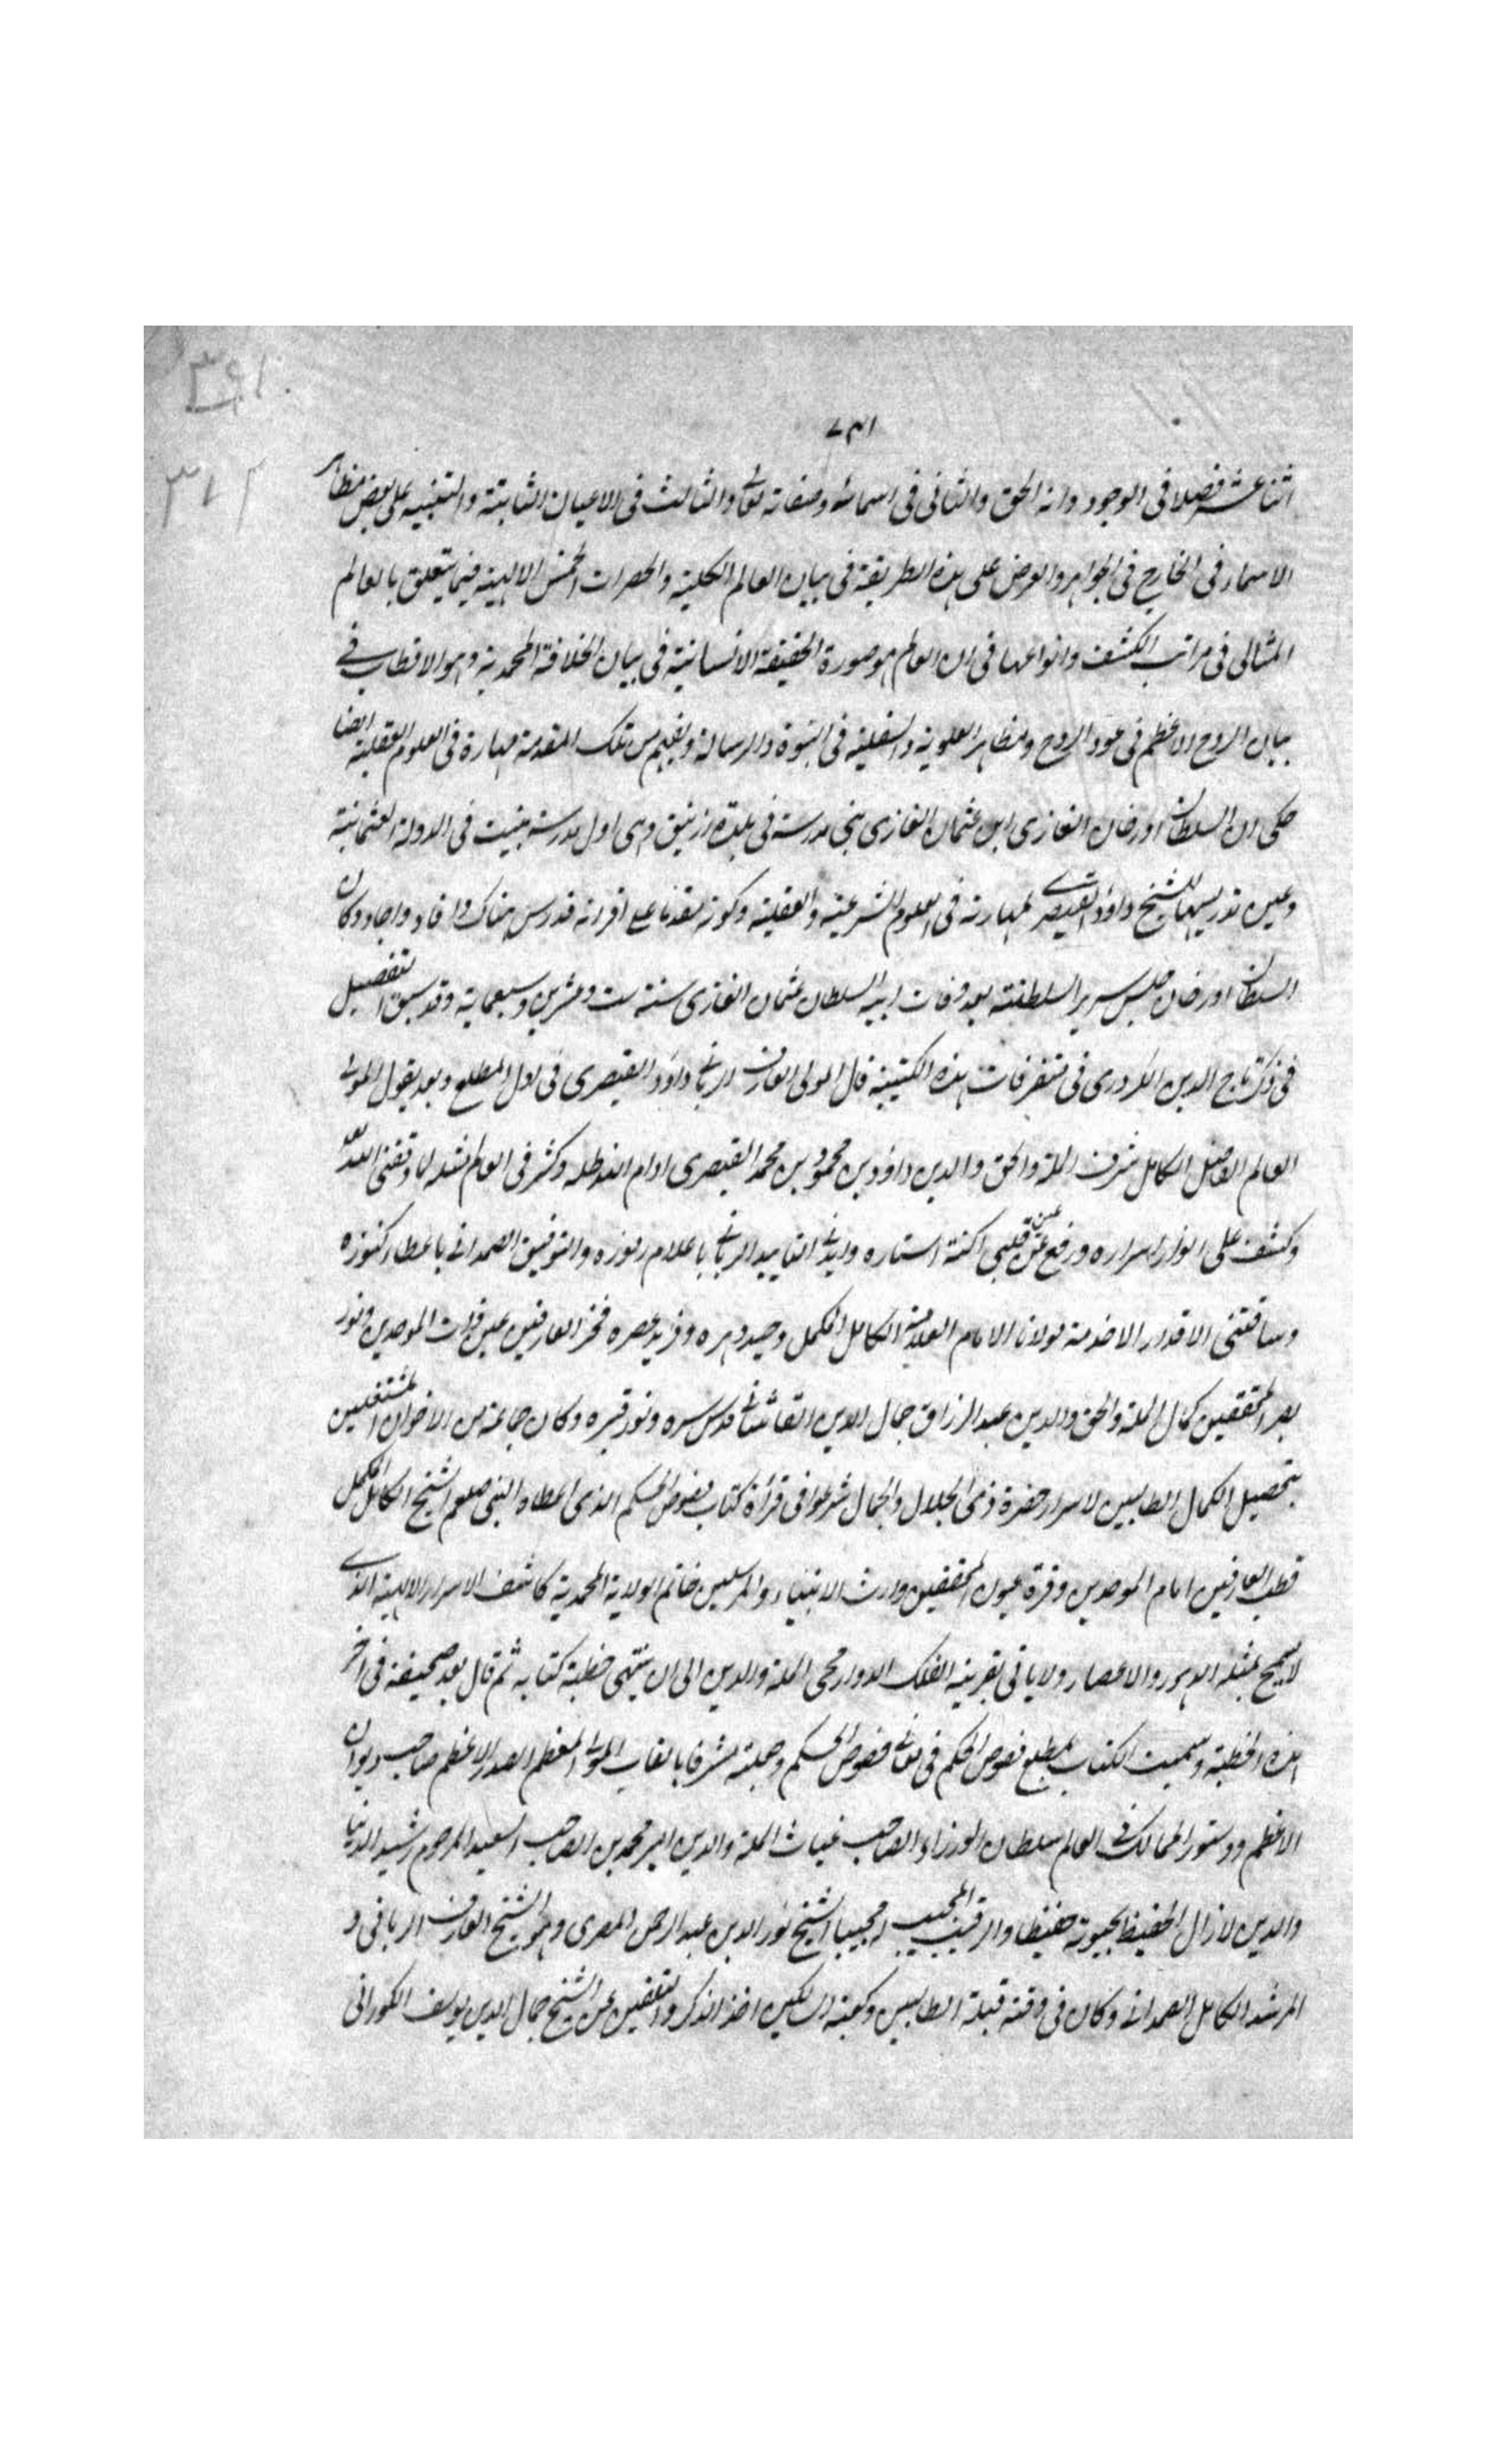 اثنا عشر فصلا فى الوجود وانه الحق والثانى فى اسمائه وصفاته تعالى والثالث فى الاعيان الثابتة والتنبيه على بعض مظاهر
الاسماء فى الخارج فى الجواهر والعرض على هذه الطريقة فى بيان العالم الكلية والحضرات الخمس الالهية فيما يتعلق بالعالم
المثالى فى مراتب الكشف وانواعها فى ان العالم هو صورة الحقيقة الانسانية فى بيان الخلافة المحمدية وهو الاقطاب فى
بيان الروح الاعظم فى عود الروح ومظاهر العلوية والسفلية فى النبوة والرسالة ويفهم من تلك المقدمة مهارة فى العلوم العقلية ايضا
حكى ان السلطان اورخان الغازى ابن عثمان الغازى بنى مدرسة فى بلدة ازنيق وهى اول مدرسة بنيت فى الدولة العثمانية
وعين تدريسها للشيخ داؤد القيصرى لمهارته فى العلوم الشرعية والعقلية وكونه مقدما على اقرانه فدرس هناك وافاد واجاد وكان
السلطان اورخان جلس سرير السلطنة بعد وفات ابيه السلطان عثمان الغازى سنة ست وعشرين وسبعماية وقد سبق التفصيل
فى ذكر تاج الدين الكردرى فى متفرقات هذه الكتيبة قال المولى العارف الربانى داؤد القيصرى فى اول المطلع وبعد يقول المولى
العالم الفاضل الكامل شرف الملة والحق والدين داؤد بن محمود بن محمد القيصرى ادام الله ظله وكثر فى العالم مثله لما وفقنى الله
وكشف على انوار اسراره ورفع عن عين قلبى اكنة استاره وايدنى التاييد الربانى باعلام رموزه والتوفيق الصمدانى باعطاء كنوزه
وساقتنى الاقدار الا خدمة مولانا الامام العلامة الكامل المكمل وحيد دهره وفريد عصره فخر العارفين عين ذات الموحدين ونور
بصر المحققين كمال الملة والحق والدين عبد الرزاق جمال الدين القاشانى قدس سره ونور قبره وكان جماعة من الاخوان المشتغلين
بتحصيل الكمال الطالبين لاسرار حضرة ذى الجلال والجمال شرعوا فى قرأة كتاب فصوص الحكم الذى اعطاه النبى صلعم الشيخ الكامل المكمل
قطب العارفين امام الموحدين وقرة عيون المحققين وارث الانبياء والمرسلين خاتم الولاية المحمدية كاشف الاسرار الالهية الذى
لا يسمح بمثله الدهور والاعصار ولا ياتى بقرينه الفلك الدوار محى الملة والدين الى ان ينتهى خطبة كتابه ثم قال بعد صحيفة فى اخر
هذه الخطبة وسميت الكتاب بمطلع خصوص الحكم فى معانى فصوص الحكم وجعلته مشرفا بالقاب المولى المعظم الصدر الاعظم صاحب ديوان
الاعظم ودستور الممالك فى العالم سلطان الوزراء الصاحب غياث الملة والدين امير محمد بن الصاحب السعيد المرحوم رشيد الدنيا
والدين لا زال الحفيظ لحيوته حفيظا والرقيب المجيب مجيبا الشيخ نور الدين عبد الرحمن المصرى وهو الشيخ العارف الربانى و
المرشد الكامل الصمدانى وكان فى وقته قبلة الطالبين وكعبة السالكين اخذ الذكر والتلقين عن الشيخ جمال الدين يوسف الكورانى